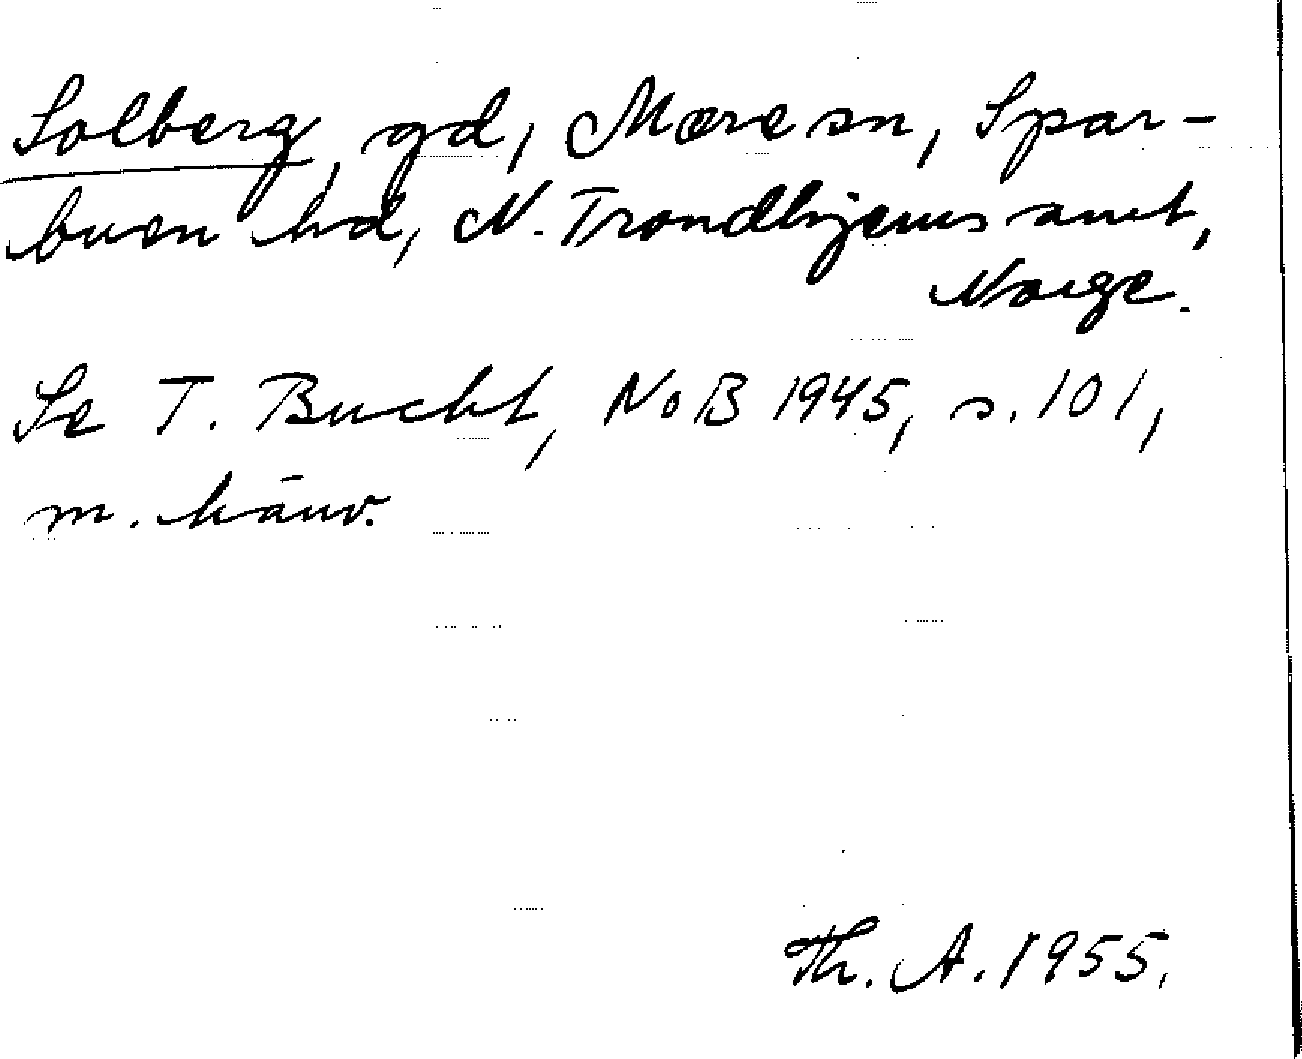 Solberg, gd, Mære sn, Spar-
buen hd, N. Trondhjems amt,
Norge.
Se T. Bucht, NoB 1945, s. 101,
m. hänv.
Th. A. 1955.